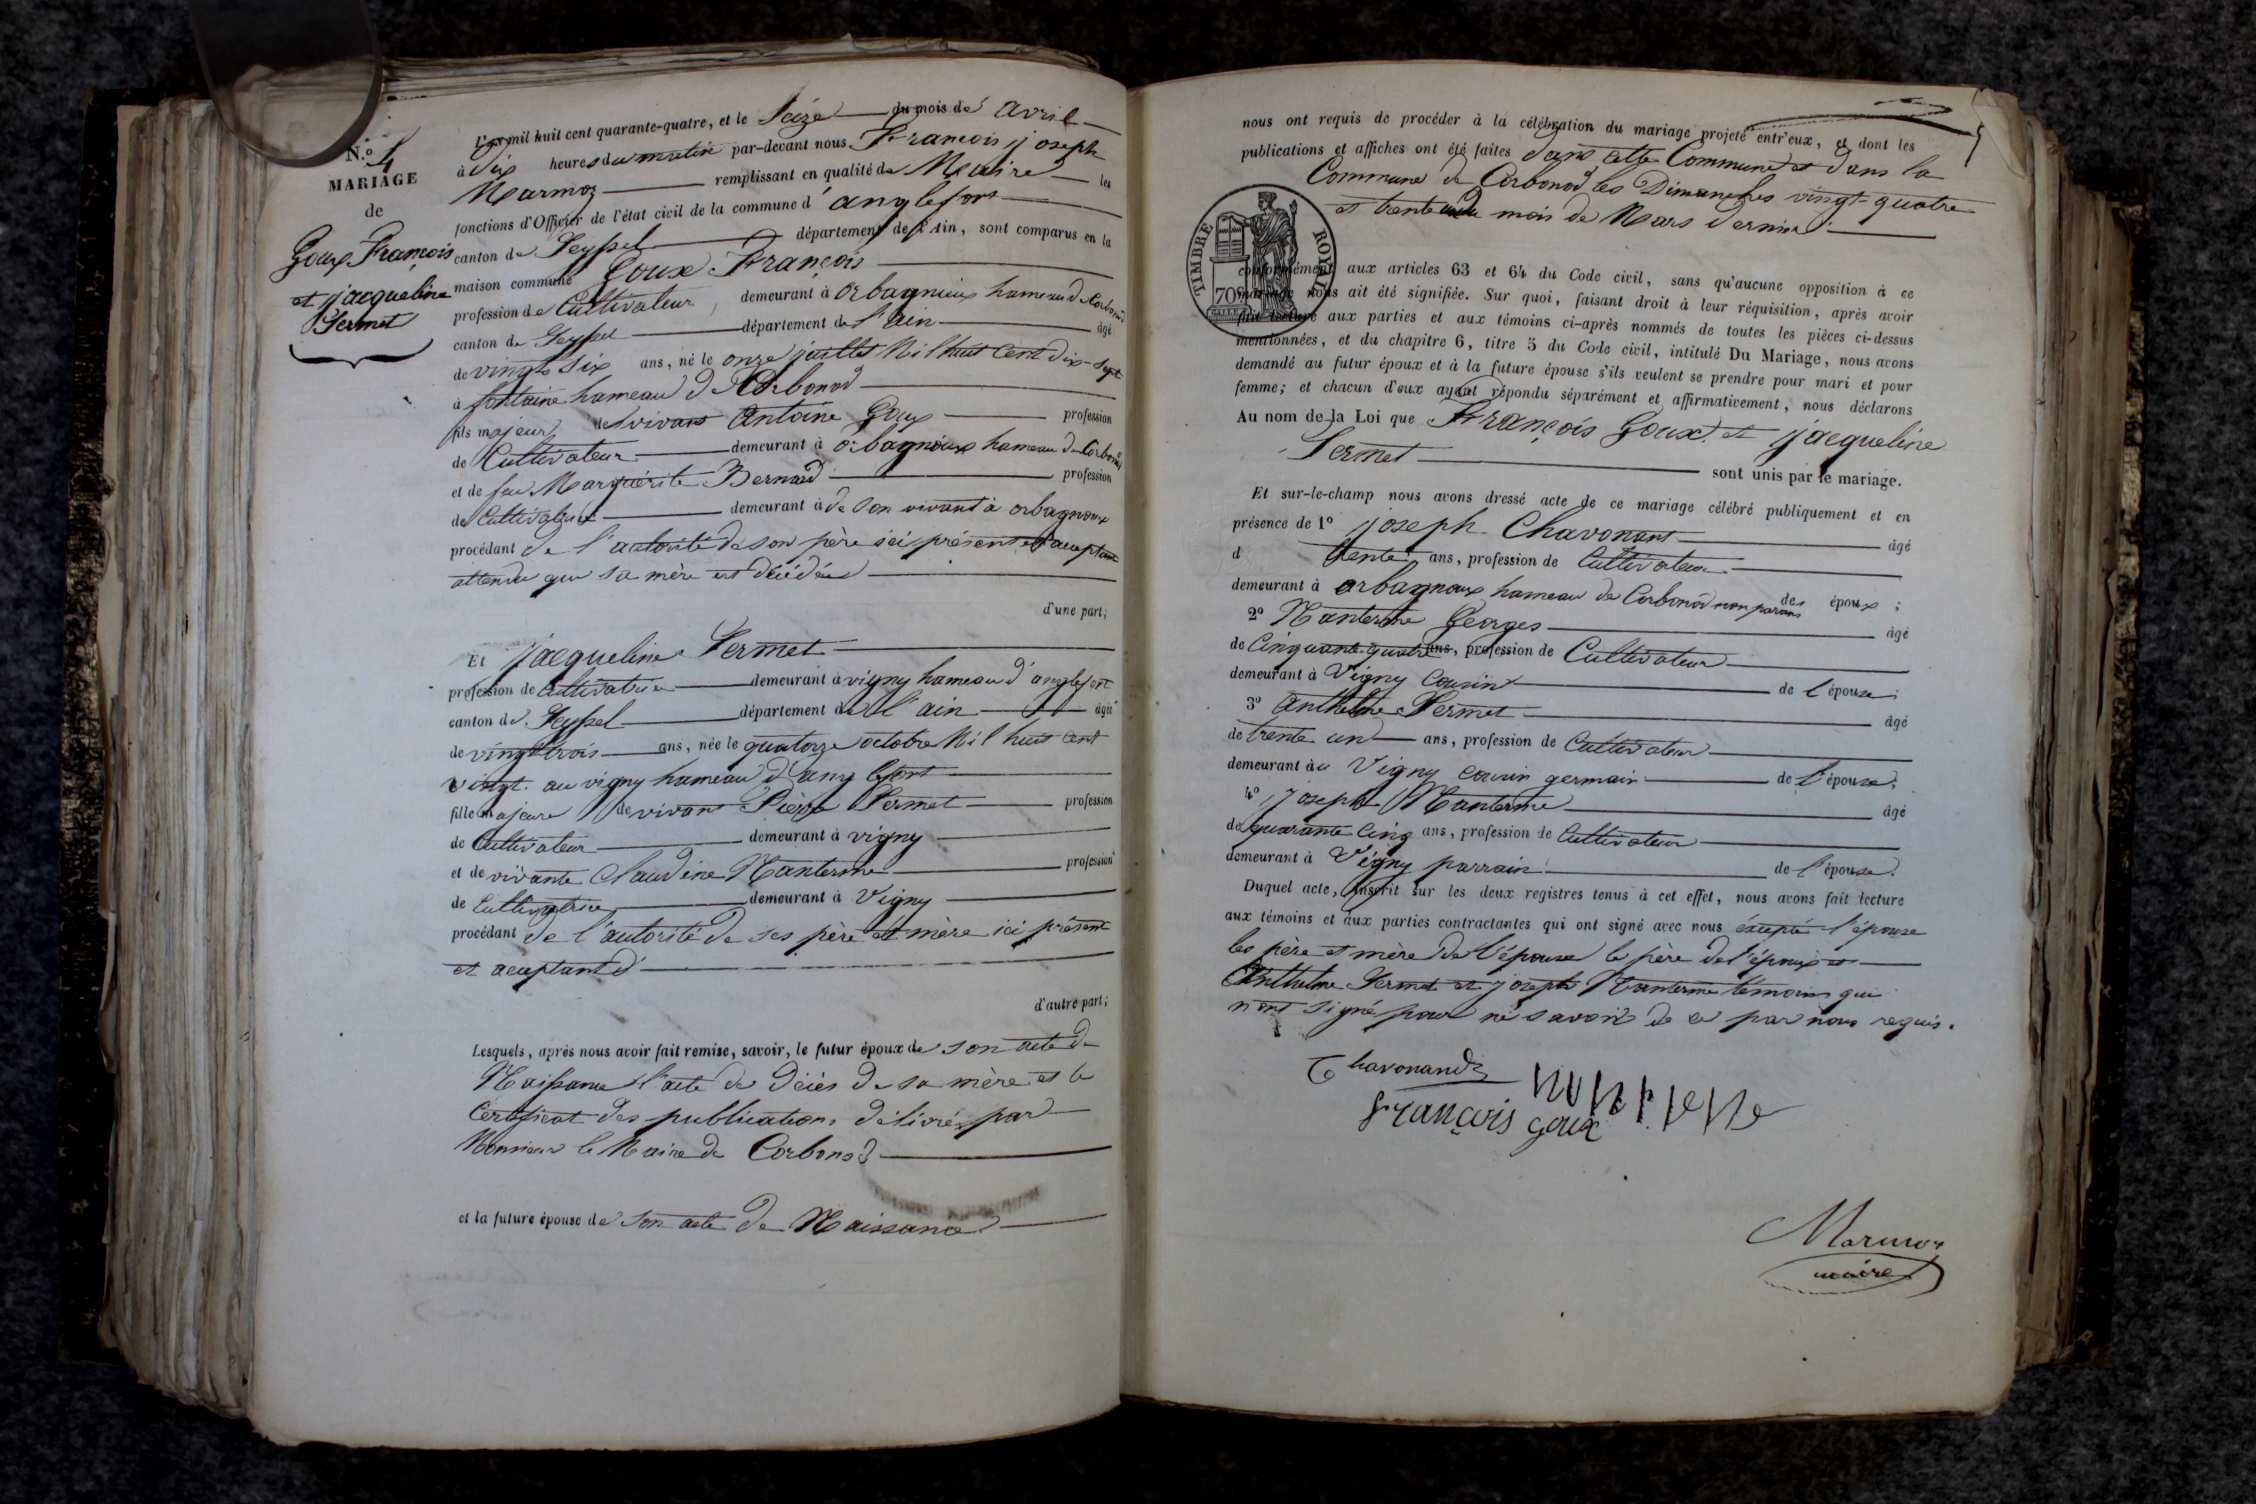 N.o 4
MARIAGE
de
Goux François
et jacqueline
Sermet
L'an mil huit cent quarante-quatre, et le Seize du mois de avril
à dix heures du matin par-devant nous François joseph
Marmoz remplissant en qualité de Maire les
fonctions d'Officier de l'état civil de la commune d'anglefort
canton de Seyssel département de l'Ain, sont comparus en la
maison commune Goux François
profession de Cultivateur, demeurant à orbagnieux hameau d Corbonod
canton de Seyssel département de l'ain âgé
de vingt six ans, né le onze juillet Mil huit Cent dix-sept
à fontaine hameau d Corbonod
fils majeur de vivant Antoine Goux profession
de Cultivateur demeurant à orbagnoux hameau de Corbonod
et de feu Marguérite Bernard profession
de Cultivatrice demeurant à de son vivant à orbagnoux
procédant de l'autorité de son père ici présent et acceptant
attendu que sa mère est décédée
d'une part;
Et jacqueline Sermet
profession de Cultivatrice demeurant à vigny hameau d'anglefort
canton de Seyssel département de l'ain âgée
de vingt trois ans, née le quatorze octobre Mil huit Cent
vingt au vigny hameau d'anglefort
fille majeure de vivant Pierre Sermet profession
de Cultivateur demeurant à vigny
et de vivante Claudine Nanterme profession
de Cultivatrice demeurant à Vigny
procédant de l'autorité de ses père et mère ici présent
et acceptant d'
d'autre part;
Lesquels, après nous avoir fait remise, savoir, le futur époux de son acte de
Naissance l'acte de Décès de sa mère et le
Certificat des publications délivré par
Monsieur le Maire de Corbonod
et la future épouse de son acte de Naissance
nous ont requis de procéder à la célébration du mariage projeté entr'eux, et dont les
publications et affiches ont été faites dans cette Commune et dans la
Commune de Corbonod les Dimanches vingt-quatre
et trente du mois de Mars dernier
TIMBRE ROYAL
70c
conformément aux articles 63 et 64 du Code civil, sans qu'aucune opposition à ce
mariage nous ait été signifiée. Sur quoi, faisant droit à leur réquisition, après avoir
fait lecture aux parties et aux témoins ci-après nommés de toutes les pièces ci-dessus
mentionnées, et du chapitre 6, titre 5 du Code civil, intitulé Du Mariage, nous avons
demandé au futur époux et à la future épouse s'ils veulent se prendre pour mari et pour
femme; et chacun d'eux ayant répondu séparément et affirmativement, nous déclarons
Au nom de la Loi que François Goux et jacqueline
Sermet sont unis par le mariage.
Et sur-le-champ nous avons dressé acte de ce mariage célébré publiquement et en
présence de 1o joseph Chavonant âgé
d trente ans, profession de Cultivateur
demeurant à orbagnoux hameau de Corbonod non parans des époux;
2o Nanterme Georges âgé
de Cinquante quatre ans, profession de Cultivateur
demeurant à Vigny Cousin de l'épouse;
3o Anthelme Sermet âgé
de trente un ans, profession de Cultivateur
demeurant àu Vigny cousin germain de l'épouse;
4o joseph Nanterme âgé
de quarante Cinq ans, profession de Cultivateur
demeurant à Vigny parrain de l'épouse.
Duquel acte, inscrit sur les deux registres tenus à cet effet, nous avons fait lecture
aux témoins et aux parties contractantes qui ont signé avec nous éxcepté l'épouse
les père et mère de l'épouse le père de l'époux et
Anthelme Sermet et joseph Nanterme témoins qui
n'ont signé pour ne savoir de ce par nous requis.
Chavonand
françois goux
Marmoz
maire